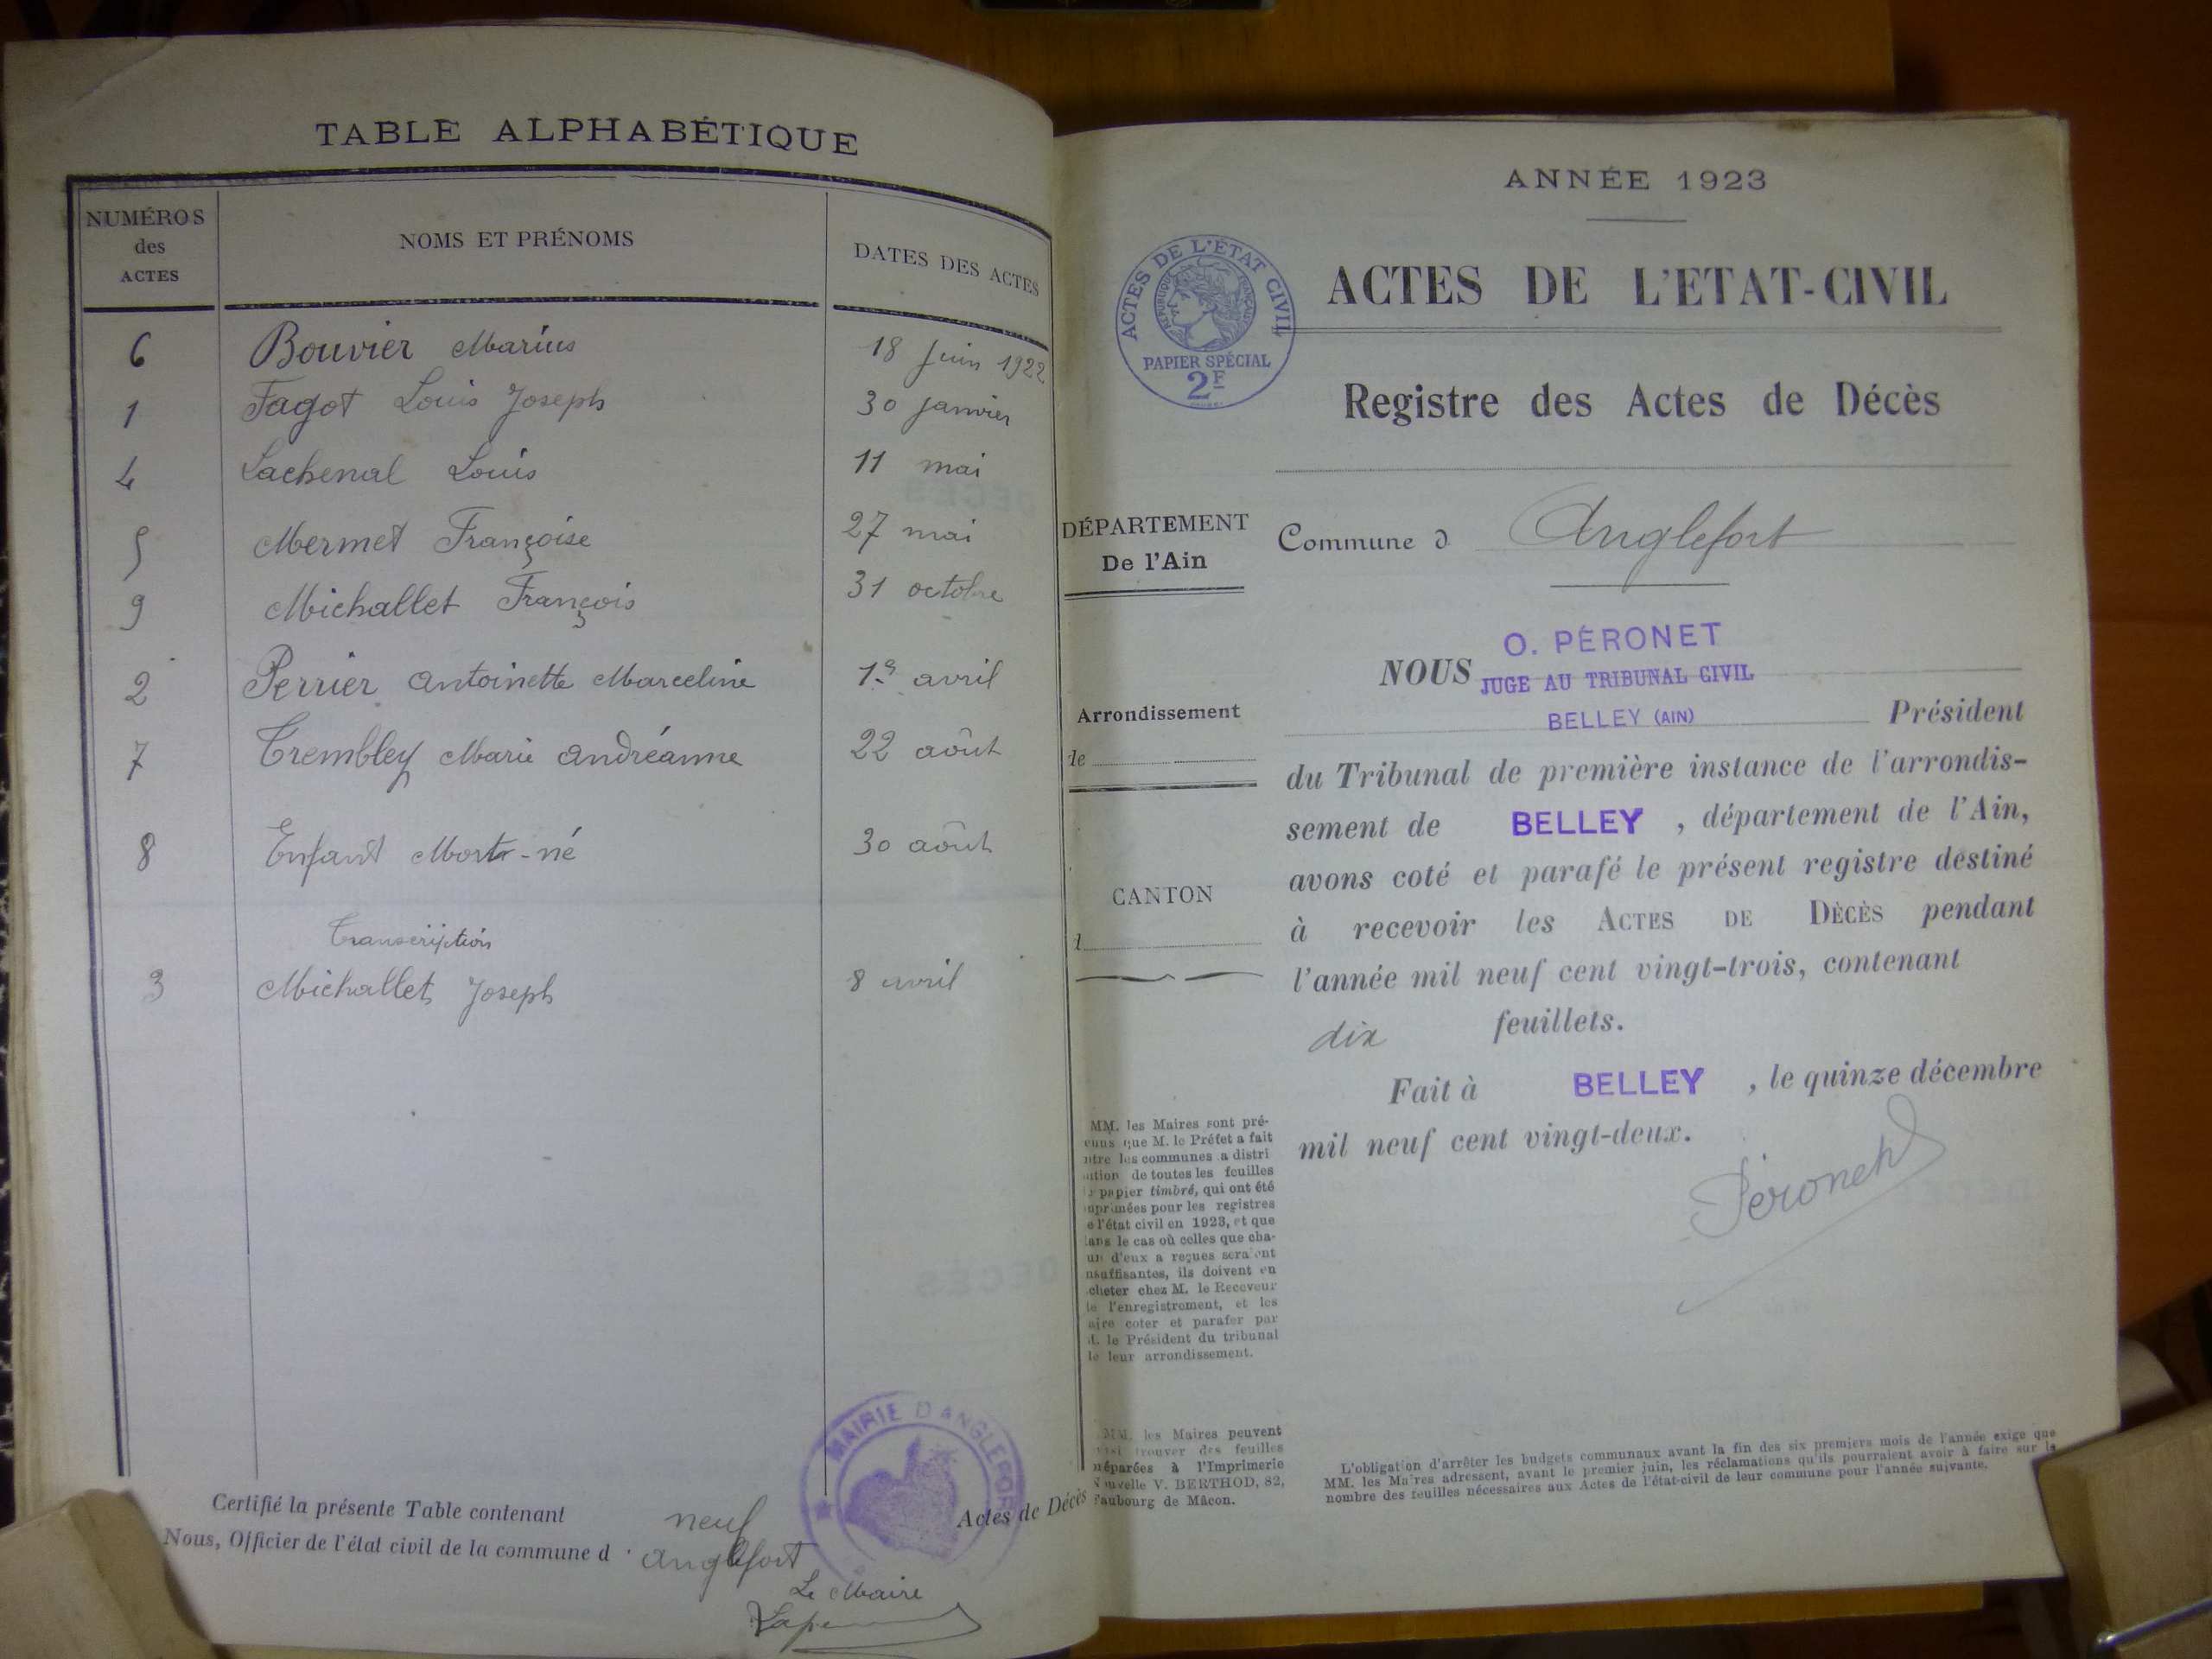 TABLE ALPHABÉTIQUE
NUMÉROS
des
ACTES
NOMS ET PRÉNOMS
DATES DES ACTES
6 Bouvier Marius 18 juin 1922
1 Fagot Louis Joseph 30 janvier
4 Lachenal Louis 11 mai
5 Mermet Françoise 27 mai
9 Michallet François 31 octobre
2 Perrier Antoinette Marceline 1er avril
7 Trembley Marie Andréanne 22 août
8 Enfant Mort-né 30 août
Transcription
3 Michallet Joseph 8 avril
Certifié la présente Table contenant neuf Actes de Décès
Nous, Officier de l'état civil de la commune d' Anglefort
Le Maire
MAIRIE D'ANGLEFORT
ANNÉE 1923
ACTES DE L'ÉTAT CIVIL
RÉPUBLIQUE FRANÇAISE
PAPIER SPÉCIAL
2F
ACTES DE L'ETAT-CIVIL
Registre des Actes de Décès
DÉPARTEMENT
De l'Ain
Commune d Anglefort
Arrondissement
de
CANTON
d
O. PÉRONET
NOUS JUGE AU TRIBUNAL CIVIL
BELLEY (AIN) Président
du Tribunal de première instance de l'arrondis-
sement de BELLEY, département de l'Ain,
avons coté et parafé le présent registre destiné
à recevoir les ACTES DE DÉCÈS pendant
l'année mil neuf cent vingt-trois, contenant
dix feuillets.
Fait à BELLEY, le quinze décembre
mil neuf cent vingt-deux.
Péronet
MM. les Maires sont pré-
que M. le Préfet a fait
les communes a distri
de toutes les feuilles
papier timbré, qui ont été
pour les registres
l'état civil en 1923, et que
le cas où celles que cha-
d'eux a reçues seraient
ils doivent en
chez M. le Receveur
l'enregistrement, et les
coter et parafer par
le Président du tribunal
leur arrondissement.
MM. les Maires peuvent
trouver des feuilles
à l'Imprimerie
V. BERTHOD, 82,
Faubourg de Mâcon.
L'obligation d'arrêter les budgets communaux avant la fin des six premiers mois de l'année exige que
MM. les Maires adressent, avant le premier juin, les réclamations qu'ils pourraient avoir à faire sur le
nombre des feuilles nécessaires aux Actes de l'état-civil de leur commune pour l'année suivante.